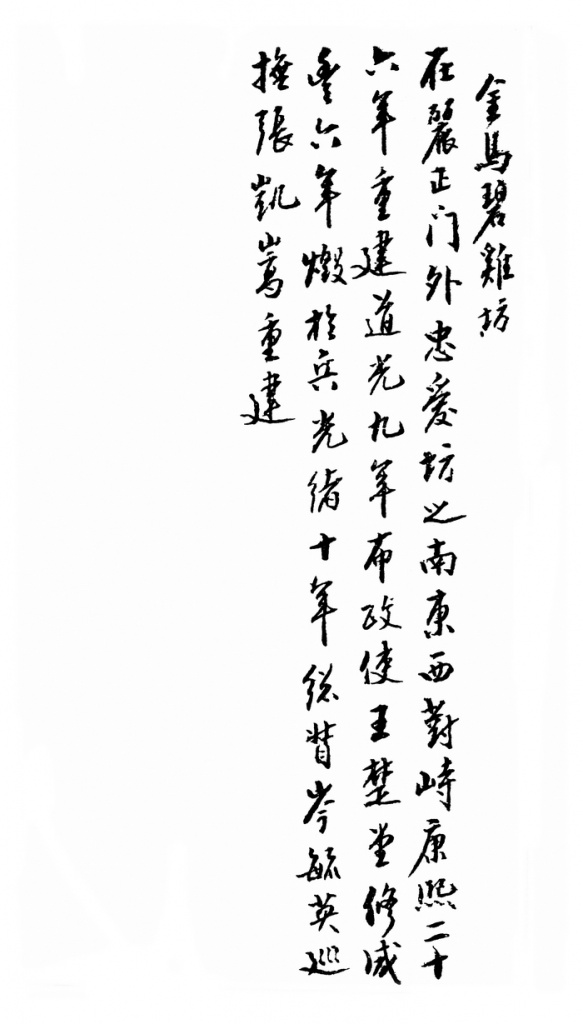 金馬碧雞坊
在麗正门外忠愛坊之南東西對峙康熙二十
六年重建道光九年布政使王楚堂修咸
豐六年燬於兵光緒十年總督岑毓英巡
撫張凱嵩重建